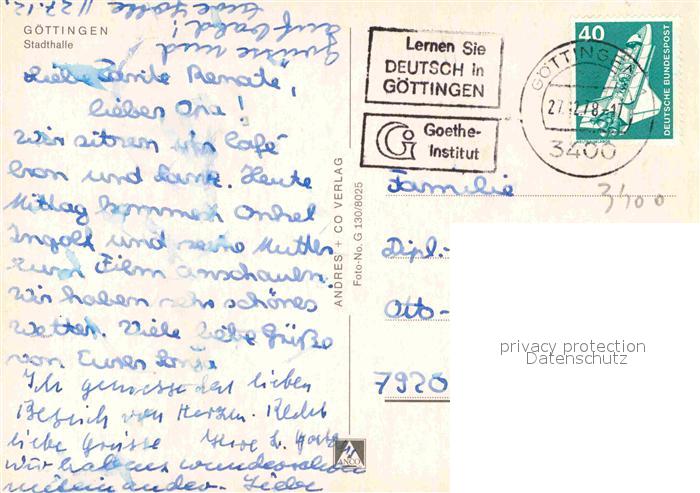 GÖTTINGEN
Stadthalle
Liebe Tante Renate,
lieber Ona!
Wir sitzen im Café
Kron und Lanz. Heute
Mittag kommen Onkel
Ingolf und seine Mutter
zum Film anschauen.
Wir haben sehr schönes
Wetter. Viele liebe Grüße
von Eurer
Ich geniesse den lieben
Besuch von Herzen. Recht
liebe Grüsse
wir haben es wunderschön
miteinander - Liebe
Grüsse und
auf bald!
27.12.
ANDRES + CO VERLAG
Foto-No. G 130/8025
ANCO
Lernen Sie
DEUTSCH in
GÖTTINGEN
Goethe-
Institut
GÖTTINGEN
27.12.78-17
3400
40
DEUTSCHE BUNDESPOST
3400
Familie
Dipl.-
Otto-
7920
privacy protection
Datenschutz